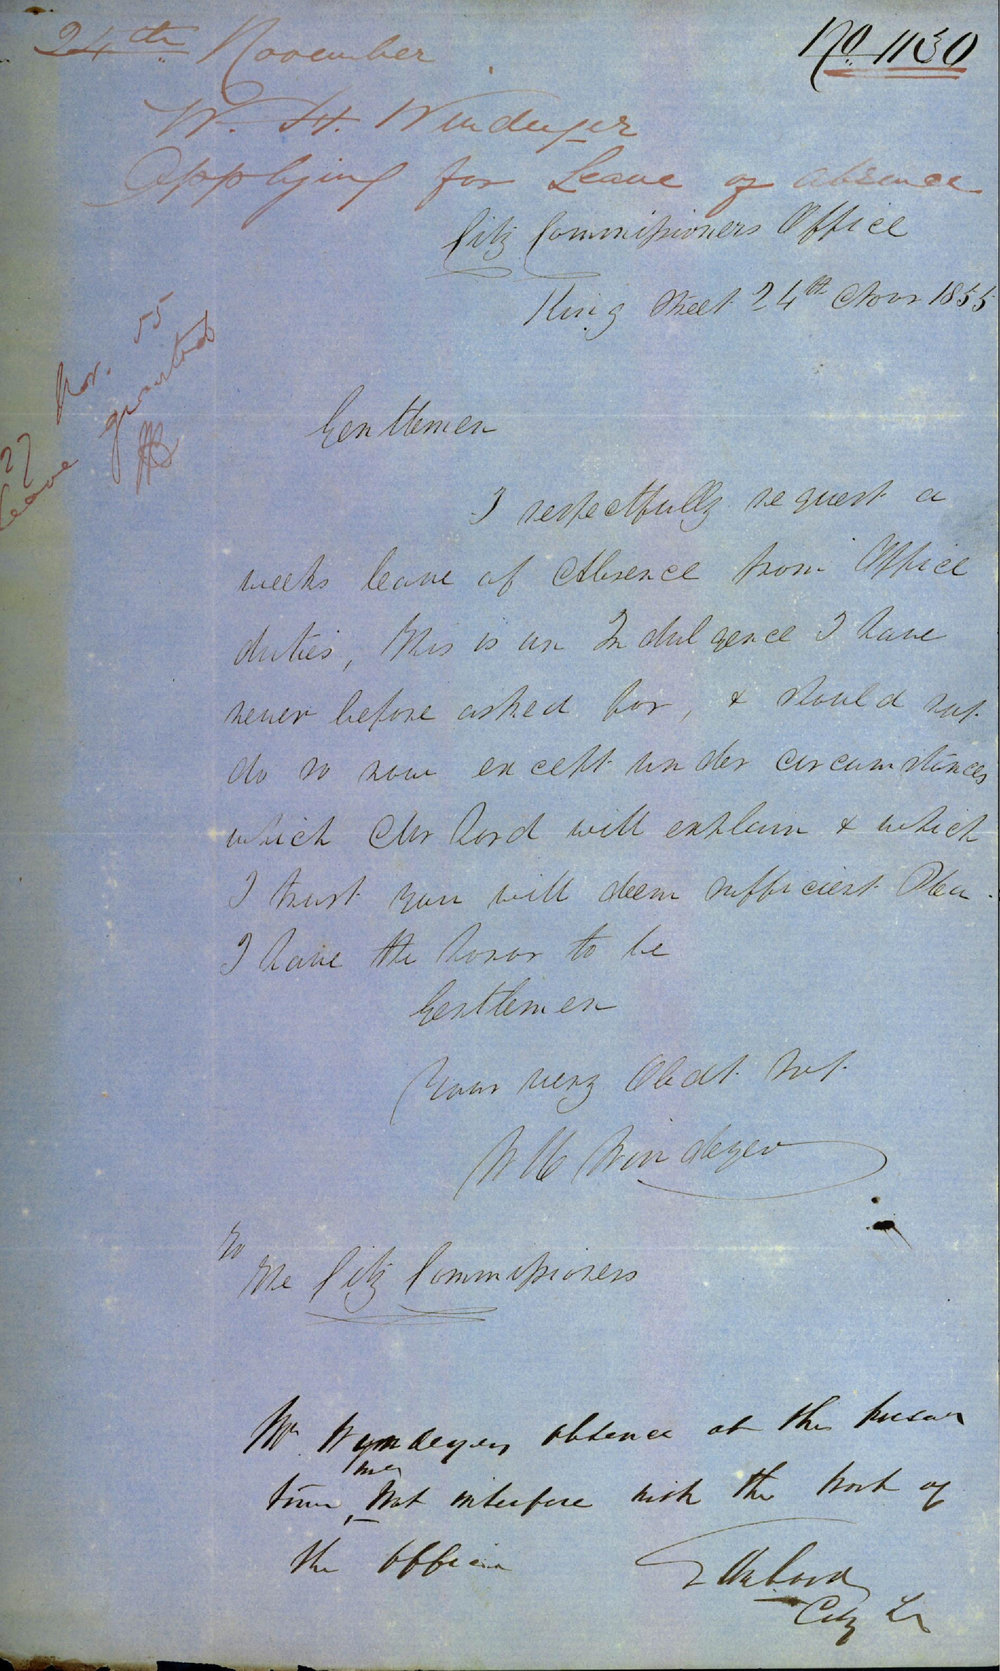 24th November
No. 1130
W. H. Windeyer
Applying for Leave of absence
City Commissioners Office
King Street 24th Novr 1855
27 Nov. 55
Leave granted
Gentlemen
I respectfully request a
weeks leave of Absence from Office
duties, this is an Indulgence I have
never before asked for, & should not
do so now except under circumstances
which Mr Lord will explain & which
I trust you will deem sufficient Plea.
I have the honor to be
Gentlemen
Your very Obedt Svt.
W H Windeyer
To
The City Commissioners
Mr Wyndeyers absence at this present
time, will not interfere with the work of
the Office
Lord
City